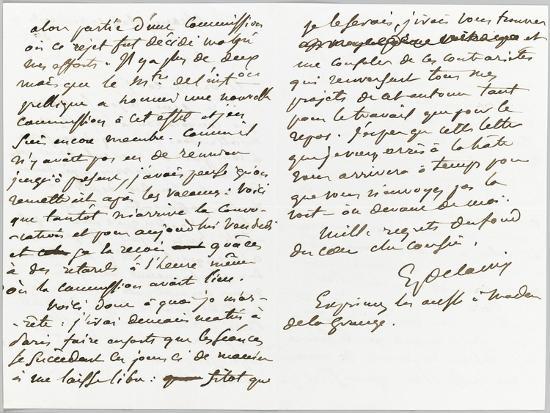 alors partie d'une commission
où ce rejet fut décidé malgré
mes efforts. Il y a plus de deux
mois que le Mtre de l'inston
publique a nommé une nouvelle
commission à cet effet et j'en
suis encore membre. Comme il
n'y avait pas eu de réunion
jusqu'à présent, j'avais pensé qu'on
remettrait après les vacances : voici
que tantôt m'arrive la convo-
-cation et pour aujourd'hui vendredi
et je la reçois grâces
à des retards à l'heure même
où la commission avait lieu.
Voici donc à quoi je m'ar-
-rête : j'irai demain matin à
Paris faire en sorte que les séances
se succèdent ces jours ci de manière
à me laisser libre : sitôt que
je le serais, j'irai vous trouver

me consoler de ces contrariétés
qui renversent tous mes
projets de cet automne tant
pour le travail que pour le
repos. J'espère que cette lettre
que je vous écris à la hâte
vous arrivera à temps pour
que vous n'envoyez pas la
voit- au devant de moi.
Mille regrets du fond
du cœur cher cousin.
Eg Delacroix
Exprimez les aussi à Madame
de la Grange.